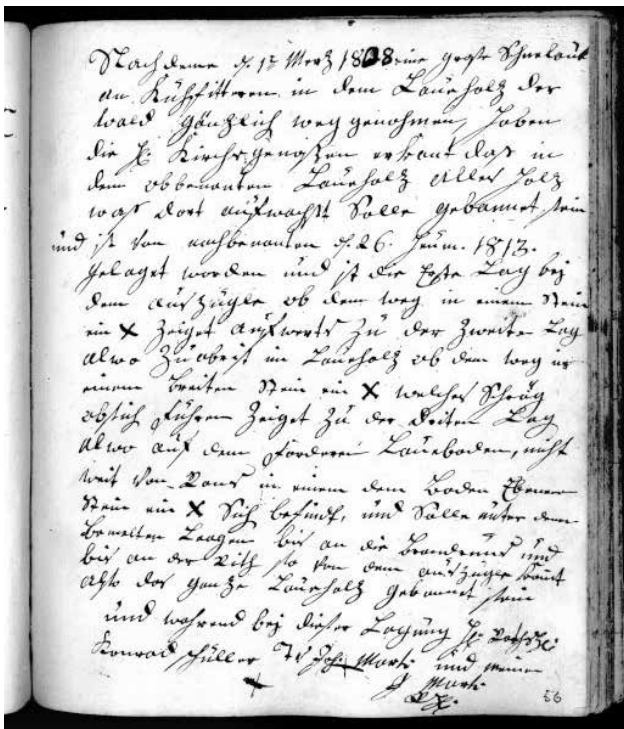 Nach deme d. 12 Mertz 1808 eine große Schnelauω
an Kühfitteren in dem Laueholtz der
wald gäntzlich weg genohmen, haben
die H. Kirchsgenoßen erkant das in
dem obbenanten Laueholtz alles holtz
was dort aufwachst Solle gebannet sein
und ist von nachbenanten d. 26. Heum. 1813.
gelaget worden und ist die Erste Lag bey
dem auszügle ob dem weg in einem Stein
ein X Zeiget aufwerts Zu der Zweite Lag
alwo Zuobrist im Laueholtz ob dem weg in
einem breiten Stein ein X welches Schräg
obsich Führen Zeiget Zu der driten Lag
alwo auf dem forderen Laueboden, nicht
weit von in einem dem boden Ebenen
Stein ein X Sich befindt, und Solle unter denen
bemelten Laagen bis an die und
bis an der so von dem auszügle komt
also das gantze Laueholtz gebannet sein
und wahrend bey dieser Lagung H.
Konrad Schüller Joh. Marti und
Marti
56